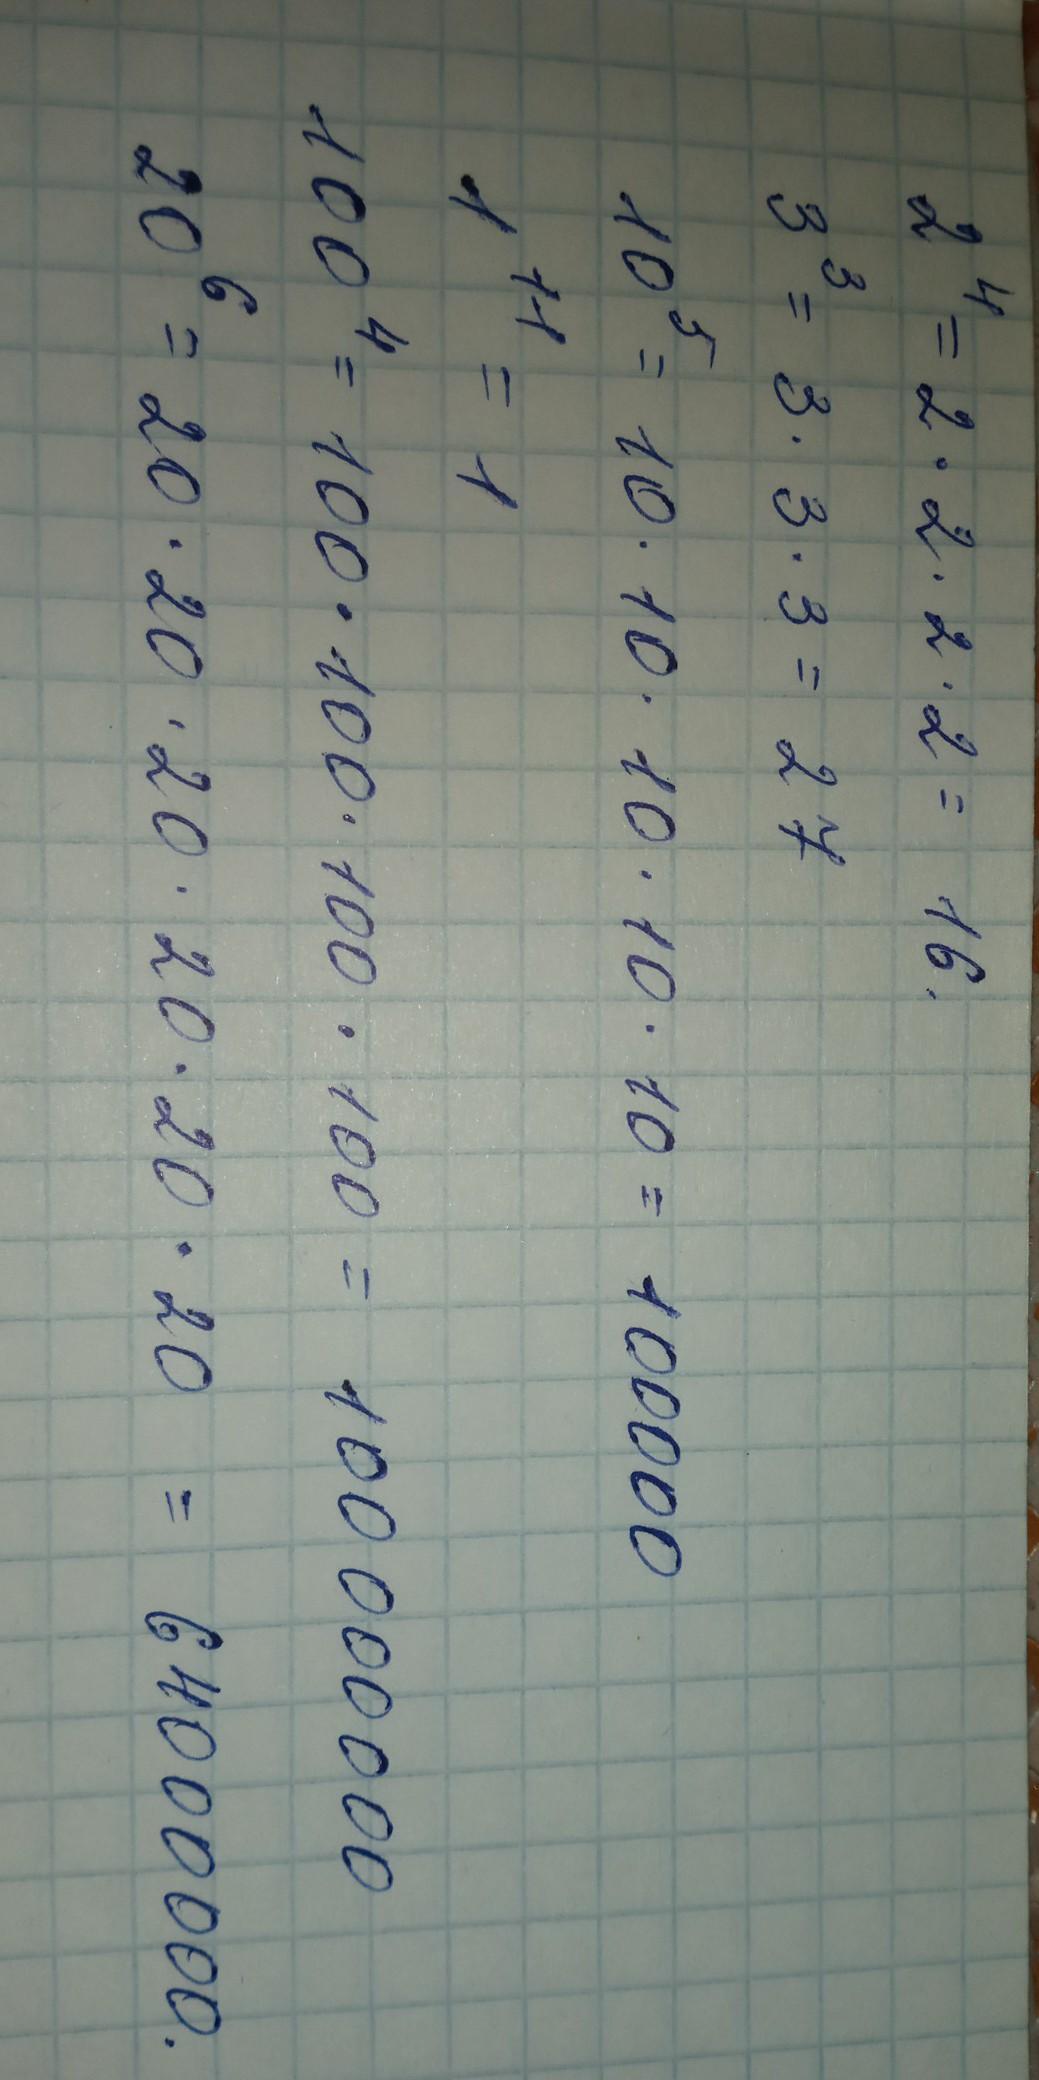 2⁴ = 2 · 2 · 2 · 2 = 16.
3³ = 3 · 3 · 3 = 27
10⁵ = 10 · 10 · 10 · 10 · 10 = 100000
1¹¹ = 1
100⁴ = 100 · 100 · 100 · 100 = 100000000
20⁶ = 20 · 20 · 20 · 20 · 20 · 20 = 64000000.